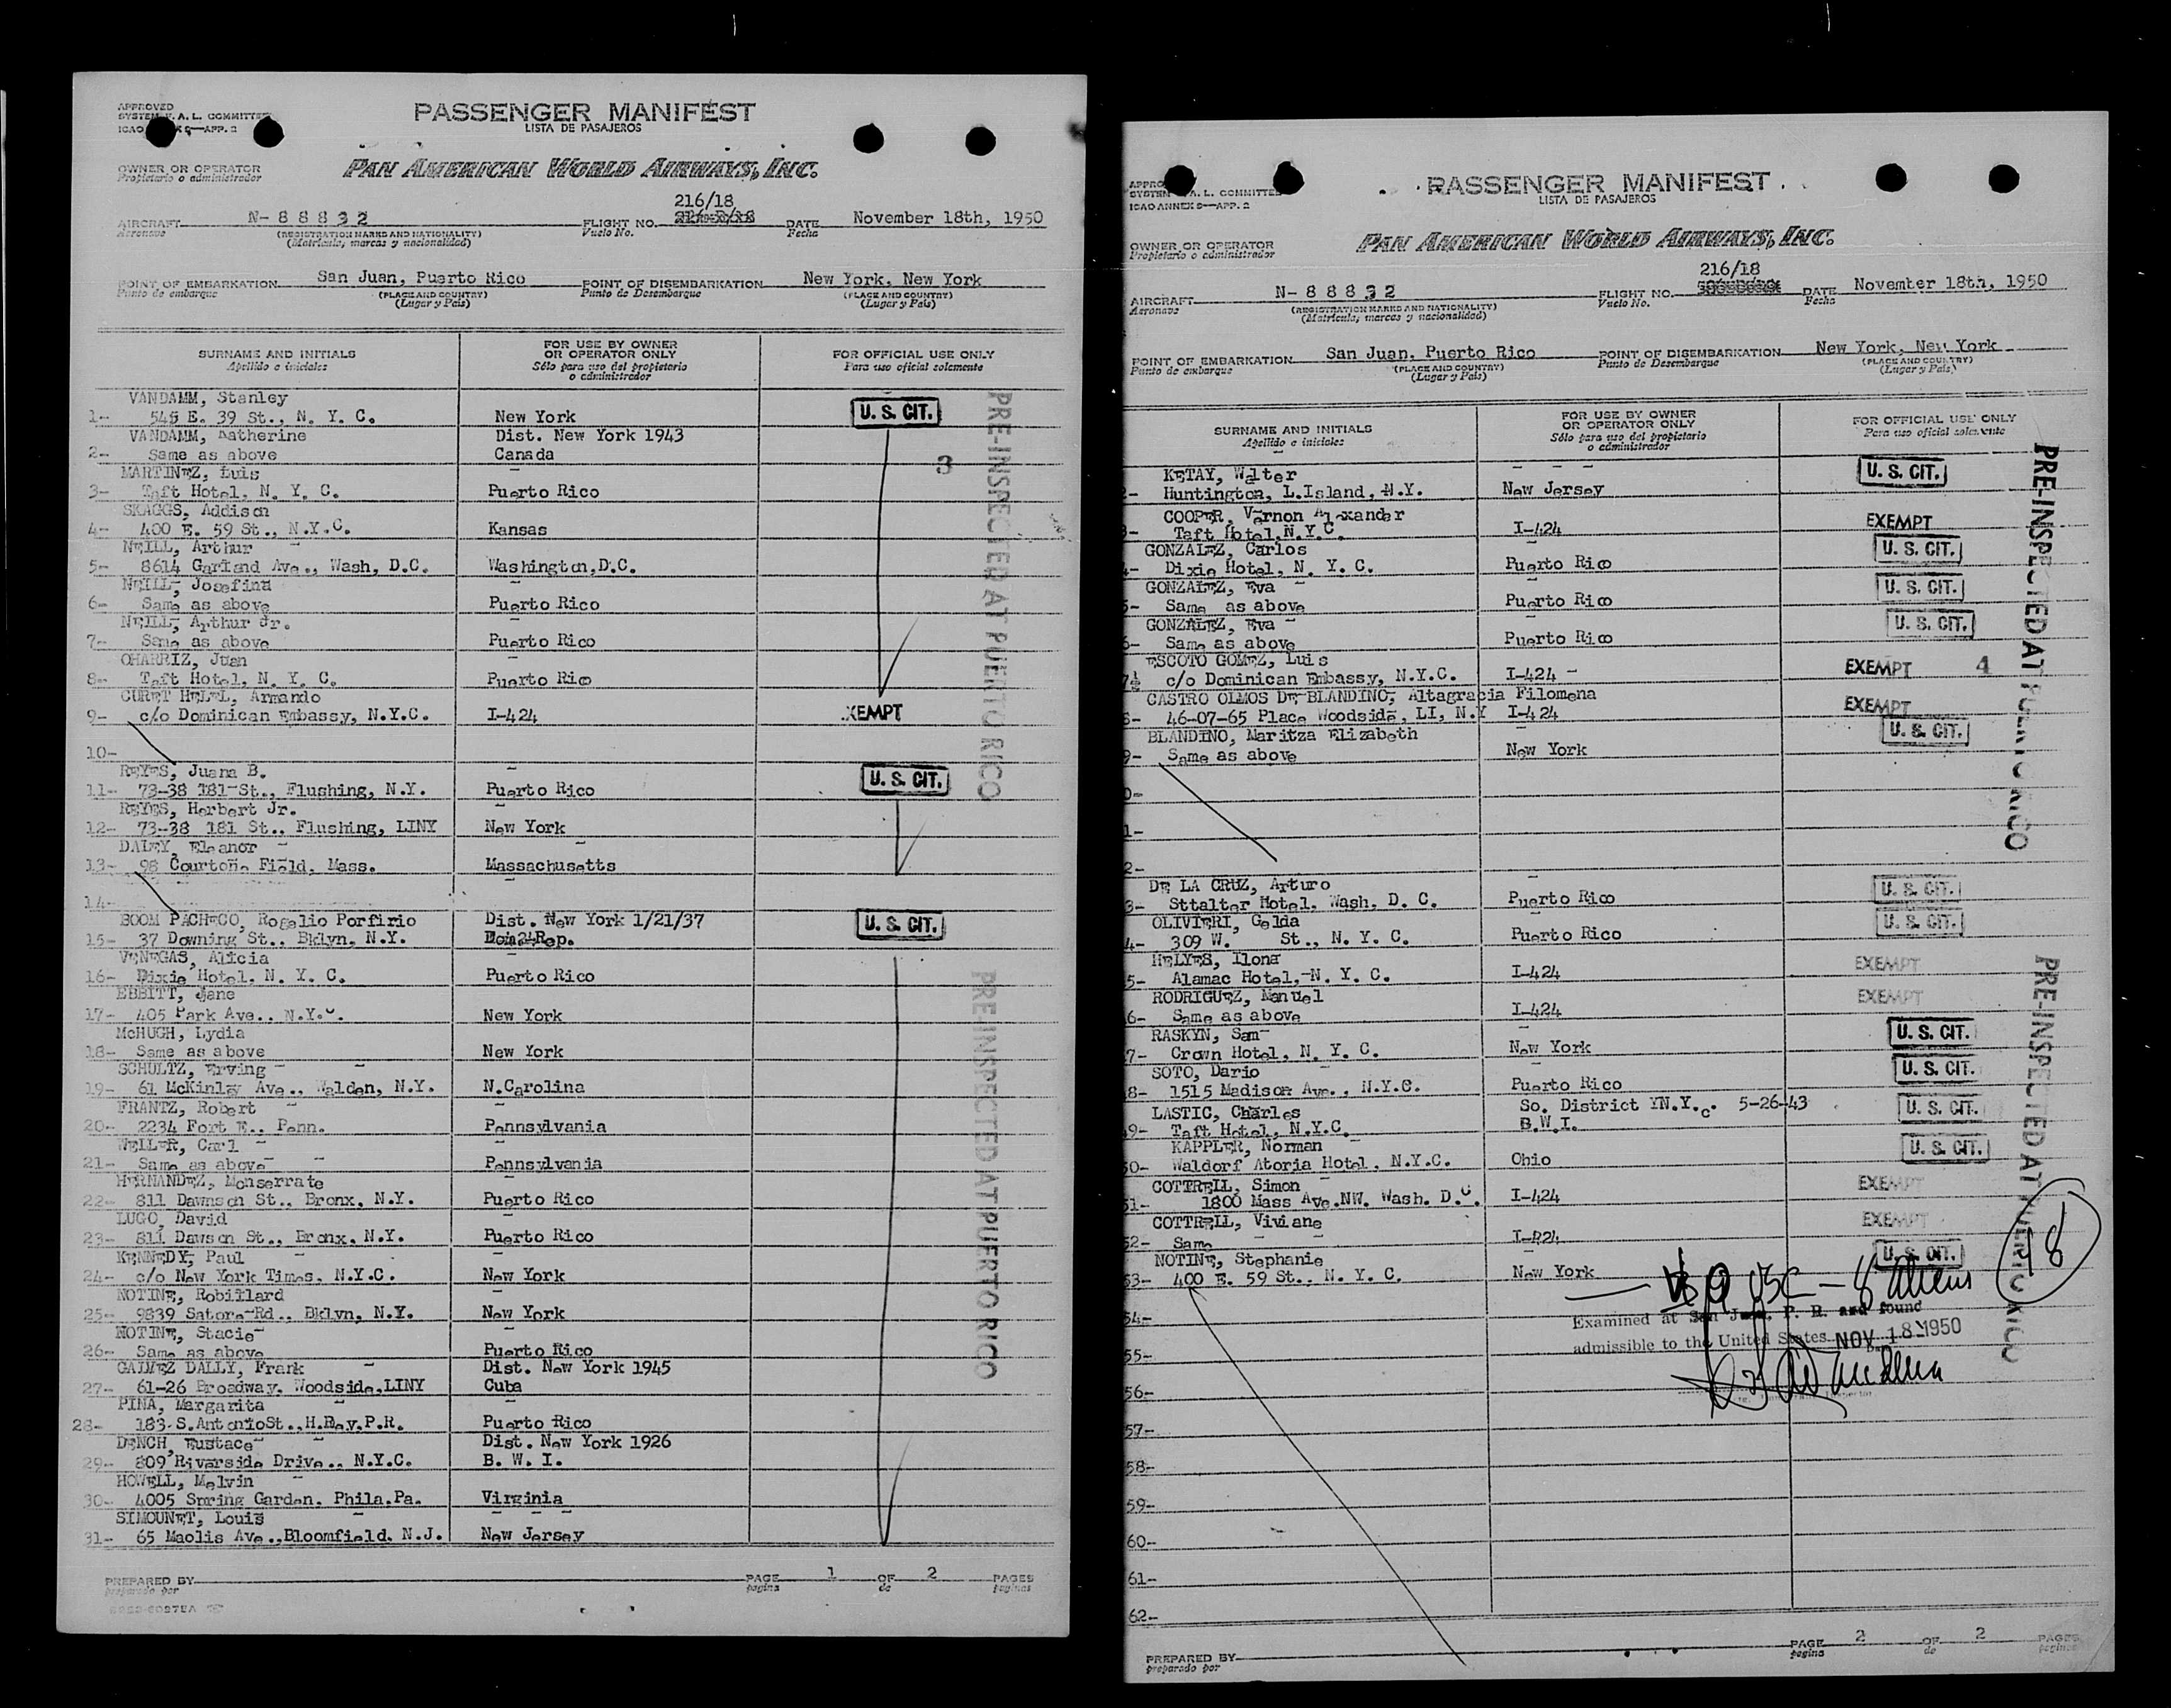 APPROVED
SYSTEM F. A. L. COMMITTEE
ICAO ANNEX 9—APP. 2
PASSENGER MANIFEST
LISTA DE PASAJEROS
OWNER OR OPERATOR
Propietario o administrador
PAN AMERICAN WORLD AIRWAYS, INC.
216/18
AIRCRAFT N-88832 FLIGHT NO. DATE November 18th, 1950
Aeronave (REGISTRATION MARKS AND NATIONALITY) Vuelo No. Fecha
(Matricula, marcas y nacionalidad)
POINT OF EMBARKATION San Juan, Puerto Rico POINT OF DISEMBARKATION New York, New York
Punto de embarque (PLACE AND COUNTRY) Punto de Desembarque (PLACE AND COUNTRY)
(Lugar y Pais) (Lugar y Pais)
SURNAME AND INITIALS FOR USE BY OWNER OR OPERATOR ONLY FOR OFFICIAL USE ONLY
Apellido e iniciales Sólo para uso del propietario o administrador Para uso oficial solamente
VANDAMM, Stanley
1- 545 E. 39 St., N. Y. C. New York U. S. CIT.
VANDAMM, Katherine Dist. New York 1943
2- Same as above Canada 3
MARTINEZ, Luis
3- Taft Hotel, N. Y. C. Puerto Rico
SKAGGS, Addison
4- 400 E. 59 St., N.Y.C. Kansas
NEILL, Arthur
5- 8614 Garland Ave., Wash, D.C. Washington,D.C.
NEILL, Josefina
6- Same as above Puerto Rico
NEILL, Arthur Jr.
7- Same as above Puerto Rico
OHARRIZ, Juan
8- Taft Hotel, N. Y. C. Puerto Rico
CURET HELEL, Armando
9- c/o Dominican Embassy, N.Y.C. I-424 EXEMPT
10-
REYES, Juana B.
11- 73-38 181 St., Flushing, N.Y. Puerto Rico U. S. CIT.
REYES, Herbert Jr.
12- 73-38 181 St., Flushing, LINY New York
DALEY, Eleanor
13- 98 Courtone Field, Mass. Massachusetts
14-
BOOM PACHECO, Rogelio Porfirio Dist. New York 1/21/37
15- 37 Downing St., Bklyn, N.Y. Dom. Rep. U. S. CIT.
VENEGAS, Alicia
16- Dixie Hotel, N. Y. C. Puerto Rico
EBBITT, Jane
17- 405 Park Ave., N.Y.C. New York
McHUGH, Lydia
18- Same as above New York
SCHULTZ, Erving
19- 61 McKinley Ave., Walden, N.Y. N.Carolina
FRANTZ, Robert
20- 2234 Fort E., Penn. Pennsylvania
WELLER, Carl
21- Same as above Pennsylvania
HERNANDEZ, Monserrate
22- 811 Dawnson St., Bronx, N.Y. Puerto Rico
LUGO, David
23- 811 Dawson St., Bronx, N.Y. Puerto Rico
KENNEDY, Paul
24- c/o New York Times, N.Y.C. New York
NOTINE, Robillard
25- 9839 Satore Rd., Bklyn, N.Y. New York
NOTINE, Stacie
26- Same as above Puerto Rico
GALVEZ DALLY, Frank Dist. New York 1945
27- 61-26 Broadway, Woodside,LINY Cuba
PINA, Margarita
28- 183 S.AntonioSt.,H.Rey,P.R. Puerto Rico
DENCH, Eustace Dist. New York 1926
29- 809 Riverside Drive., N.Y.C. B. W. I.
HOWELL, Melvin
30- 4005 Spring Garden, Phila.Pa. Virginia
SIMOUNET, Louis
31- 65 Maolis Ave.,Bloomfield, N.J. New Jersey
PRE-INSPECTED AT PUERTO RICO
PRE-INSPECTED AT PUERTO RICO
PREPARED BY PAGE 1 OF 2 PAGES
preparado por pagina de paginas
APPROVED
SYSTEM F. A. L. COMMITTEE
ICAO ANNEX 9—APP. 2
PASSENGER MANIFEST
LISTA DE PASAJEROS
OWNER OR OPERATOR
Propietario o administrador
PAN AMERICAN WORLD AIRWAYS, INC.
216/18
AIRCRAFT N-88832 FLIGHT NO. DATE November 18th, 1950
Aeronave (REGISTRATION MARKS AND NATIONALITY) Vuelo No. Fecha
(Matricula, marcas y nacionalidad)
POINT OF EMBARKATION San Juan, Puerto Rico POINT OF DISEMBARKATION New York, New York
Punto de embarque (PLACE AND COUNTRY) Punto de Desembarque (PLACE AND COUNTRY)
(Lugar y Pais) (Lugar y Pais)
SURNAME AND INITIALS FOR USE BY OWNER OR OPERATOR ONLY FOR OFFICIAL USE ONLY
Apellido e iniciales Sólo para uso del propietario o administrador Para uso oficial solamente
KETAY, Walter
2- Huntington, L.Island, N.Y. New Jersey U. S. CIT.
COOPER, Vernon Alexander
3- Taft Hotel,N.Y.C. I-424 EXEMPT
GONZALEZ, Carlos
4- Dixie Hotel, N. Y. C. Puerto Rico U. S. CIT.
GONZALEZ, Eva
5- Same as above Puerto Rico U. S. CIT.
GONZALEZ, Eva
6- Same as above Puerto Rico U. S. CIT.
ESCOTO GOMEZ, Luis
7- c/o Dominican Embassy, N.Y.C. I-424 EXEMPT 4
CASTRO OLMOS DE BLANDINO, Altagracia Filomena
8- 46-07-65 Place Woodside, LI, N.Y I-424 EXEMPT
BLANDINO, Maritza Elizabeth
9- Same as above New York U. S. CIT.
0-
1-
2-
DE LA CRUZ, Arturo
3- Sttalter Hotel, Wash, D. C. Puerto Rico U. S. CIT.
OLIVIERI, Gelda
4- 309 W. St., N. Y. C. Puerto Rico U. S. CIT.
HELYES, Ilona
5- Alamac Hotel, N. Y. C. I-424 EXEMPT
RODRIGUEZ, Manuel
6- Same as above I-424 EXEMPT
RASKYN, Sam
7- Crown Hotel, N. Y. C. New York U. S. CIT.
SOTO, Dario
8- 1515 Madison Ave., N.Y.C. Puerto Rico U. S. CIT.
LASTIC, Charles So. District YN.Y.c. 5-26-43
49- Taft Hotel, N.Y.C. B.W.I. U. S. CIT.
KAPPLER, Norman
50- Waldorf Atoria Hotel, N.Y.C. Ohio U. S. CIT.
COTTRELL, Simon
51- 1800 Mass Ave.NW. Wash. D.C. I-424 EXEMPT
COTTRELL, Viviane
52- Same I-424 EXEMPT
NOTINE, Stephanie
53- 400 E. 59 St., N. Y. C. New York U. S. CIT.
USC — 8 Aliens
48
54-
Examined at San Juan, P. R. and found
admissible to the United States NOV 18 1950
55-
56-
57-
58-
59-
60-
61-
62-
PRE-INSPECTED AT PUERTO RICO
PRE-INSPECTED AT PUERTO RICO
PREPARED BY PAGE 2 OF 2 PAGES
preparado por pagina de paginas